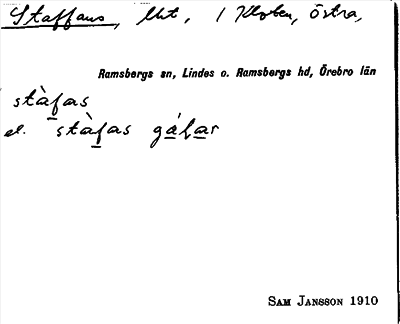 Staffans, lht, / Kloten, Östra,
Ramsbergs sn, Lindes o. Ramsbergs hd, Örebro län
stàfas
el. stàfas gáḷar
SAM JANSSON 1910